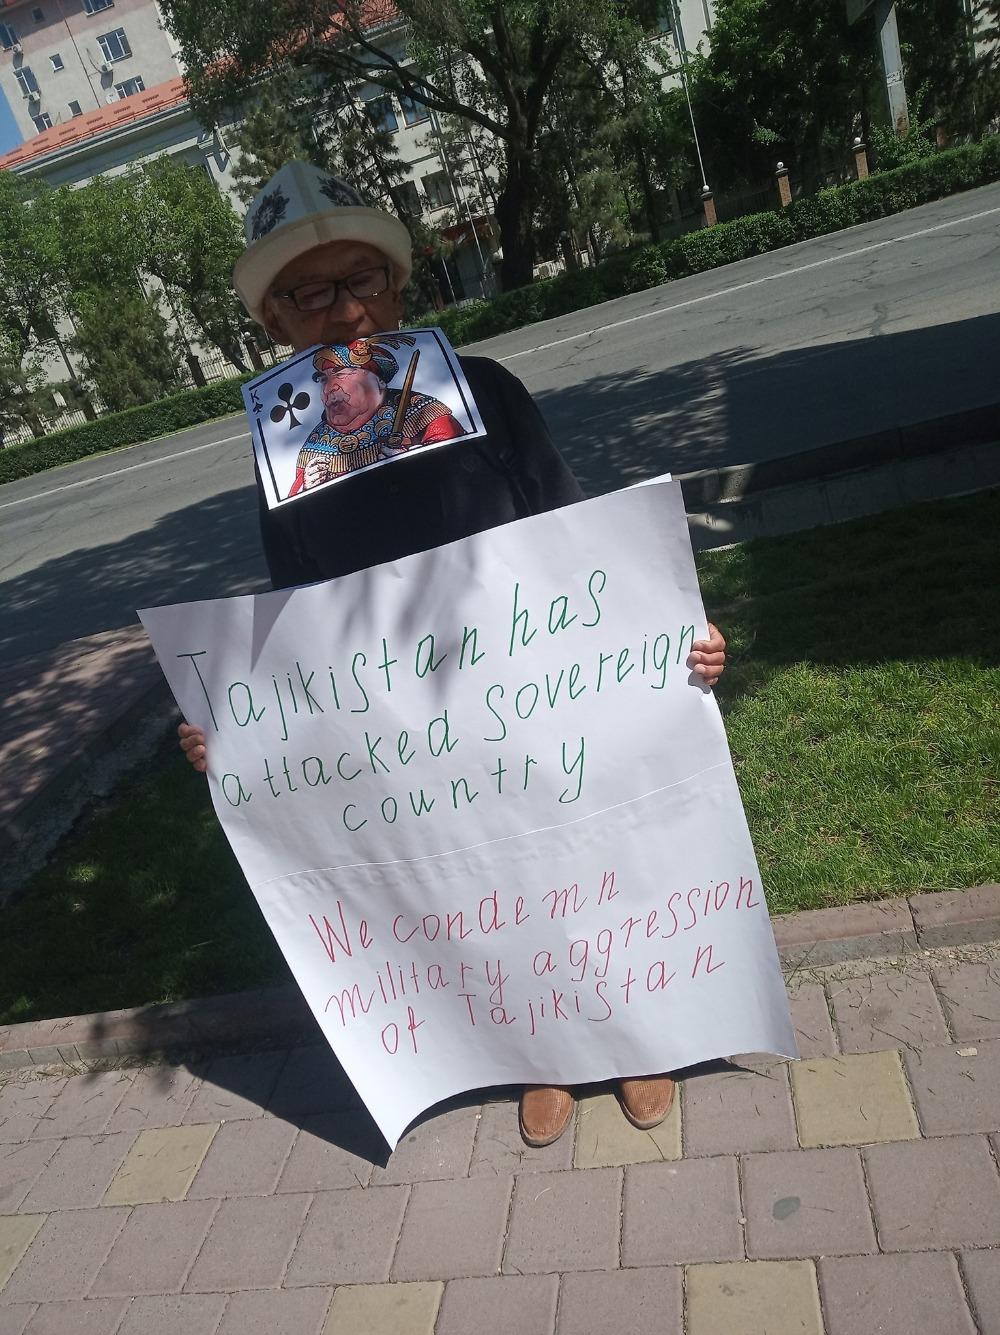 K
Tajikistan has
attacked sovereign
country
We condemn
military aggression
of Tajikistan